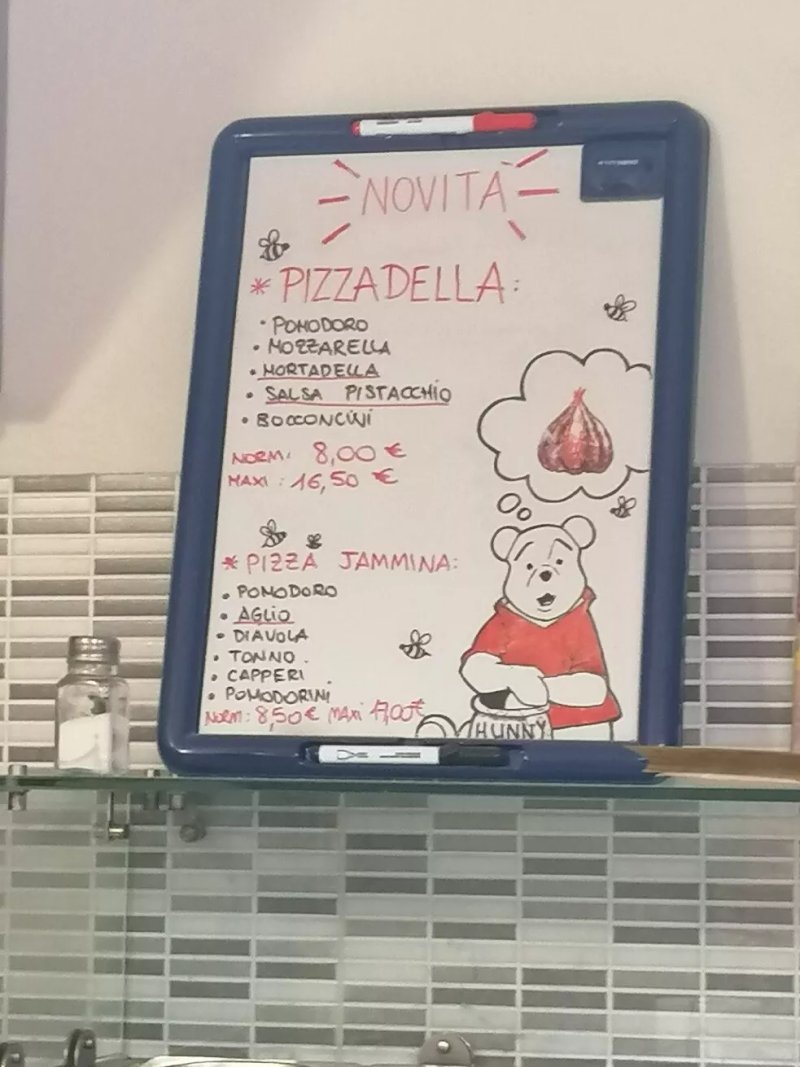 NOVITÀ
* PIZZADELLA:
• POMODORO
• MOZZARELLA
• MORTADELLA
• SALSA PISTACCHIO
• BOCCONCINI
NORM: 8,00 €
MAXI: 16,50 €
* PIZZA JAMMINA:
• POMODORO
• AGLIO
• DIAVOLA
• TONNO
• CAPPERI
• POMODORINI
NORM: 8,50 € MAXI 17,00 €
HUNNY